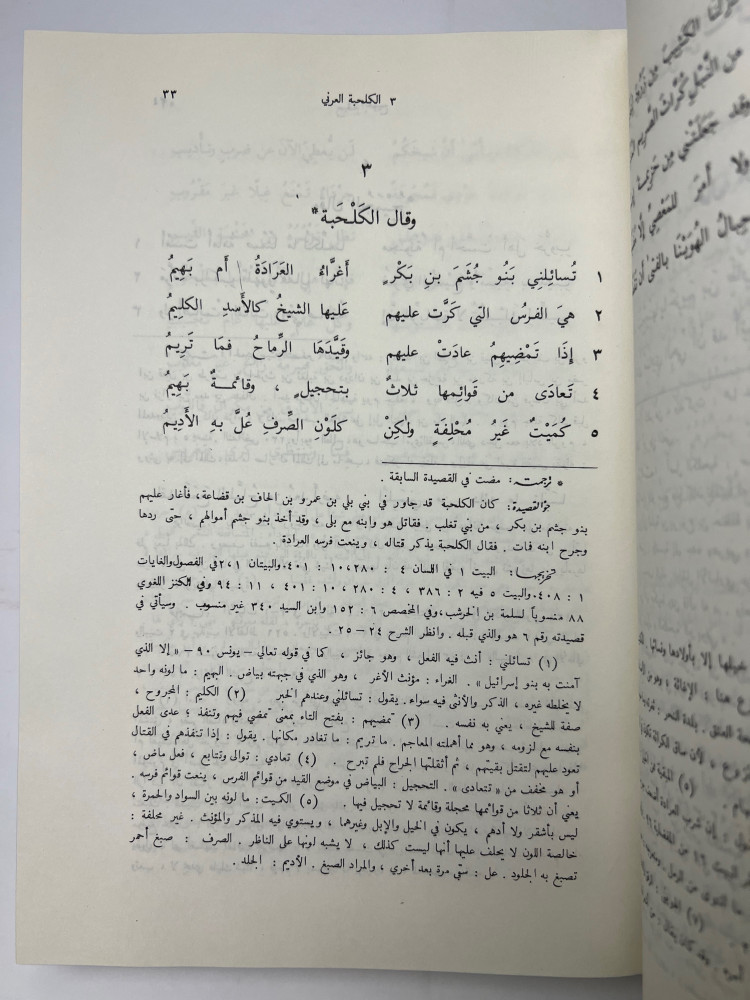 ٣ الكلحبة العرني
٣٣
٣
وقال الكَلْحَبة*
١ تُسائِلنِي بَنُو جُشَمَ بنِ بَكْرٍ أَغَرَّاءُ العَرَادَةُ أَم بَهِيمُ
٢ هيَ الفرسُ التي كَرَّت عليهم عَليها الشيخُ كالأَسدِ الكليمُ
٣ إِذَا تَمْضِيهِمُ عادَتْ عليهم وقَيَّدَها الرِّماحُ فمَا تَرِيمُ
٤ تَعَادَى من قَوائِمها ثلاثٌ بتحجيلٍ ، وقائمةٌ بَهِيمُ
٥ كُمَيْتٌ غَيرُ مُحْلِفَةٍ ولٰكِنْ كلَوْنِ الصِّرفِ عُلَّ بهِ الأَدِيمُ
* ترجمته: مضت في القصيدة السابقة .
جو القصيدة: كان الكلحبة قد جاور في بني بلي بن عمرو بن الحاف بن قضاعة، فأغار عليهم
بنو جشم بن بكر ، من بني تغلب . فقاتل هو وابنه مع بلى ، وقد أخذ بنو جشم أموالهم ، حتى ردها
وجرح ابنه فات . فقال الكلحبة يذكر قتاله ، وينعت فرسه العرادة .
تخريجها: البيت ١ في اللسان ٤ : ٢٨٠ ، ١٠ : ٤٠١. والبيتان ٢،١ في الفصول والغايات
١ : ٤٠٨. والبيت ٥ فيه ٢ : ٣٨٦ ، ٤ : ٢٨٠ ، ١٠ : ٤٠١ ، ١١ : ٩٤ وفي الكنز اللغوي
٨٨ منسوباً لسلمة بن الخرشب، وفي المخصص ٦ : ١٥٢ وابن السيد ٣٤٠ غير منسوب . وسيأتي في
قصيدته رقم ٦ هو والذي قبله . وانظر الشرح ٢٤ – ٢٥ .
(١) تسائلني : أنث فيه الفعل ، وهو جائز ، كما في قوله تعالى – يونس ٩٠ – « إلا الذي
آمنت به بنو إسرائيل » . الغراء : مؤنث الأغر ، وهو الذي في جبهته بياض . البهيم : ما لونه واحد
لا يخلطه غيره ، الذكر والأنثى فيه سواء . يقول : تسائلني وعندهم الخبر (٢) الكليم : المجروح ،
صفة للشيخ ، يعني به نفسه . (٣) تمضيهم : بفتح التاء بمعنى تمضي فيهم وتنفذ ؛ عدى الفعل
بنفسه مع لزومه ، وهو مما أهملته المعاجم . ما تريم : ما تغادر مكانها . يقول : إذا تنفذهم في القتال
تعود عليهم لتقتل بقيتهم ، ثم أثقلتها الجراح فلم تبرح . (٤) تعادي : توالى وتتابع ، فعل ماض ،
أو هو مخفف من « تتعادى » . التحجيل : البياض في موضع القيد من قوائم الفرس ، ينعت قوائم فرسه .
يعني أن ثلاثا من قوائمها محجلة وقائمة لا تحجيل فيها . (٥) الكميت : ما لونه بين السواد والحمرة ،
ليس بأشقر ولا أدهم ، يكون في الخيل والإبل وغيرهما ، ويستوي فيه المذكر والمؤنث . غير محلفة :
خالصة اللون لا يحلف عليها أنها ليست كذلك ، لا يشبه لونها على الناظر . الصرف : صبغ أحمر
تصبغ به الجلود . عل : سقي مرة بعد أخرى ، والمراد الصبغ . الأديم : الجلد .